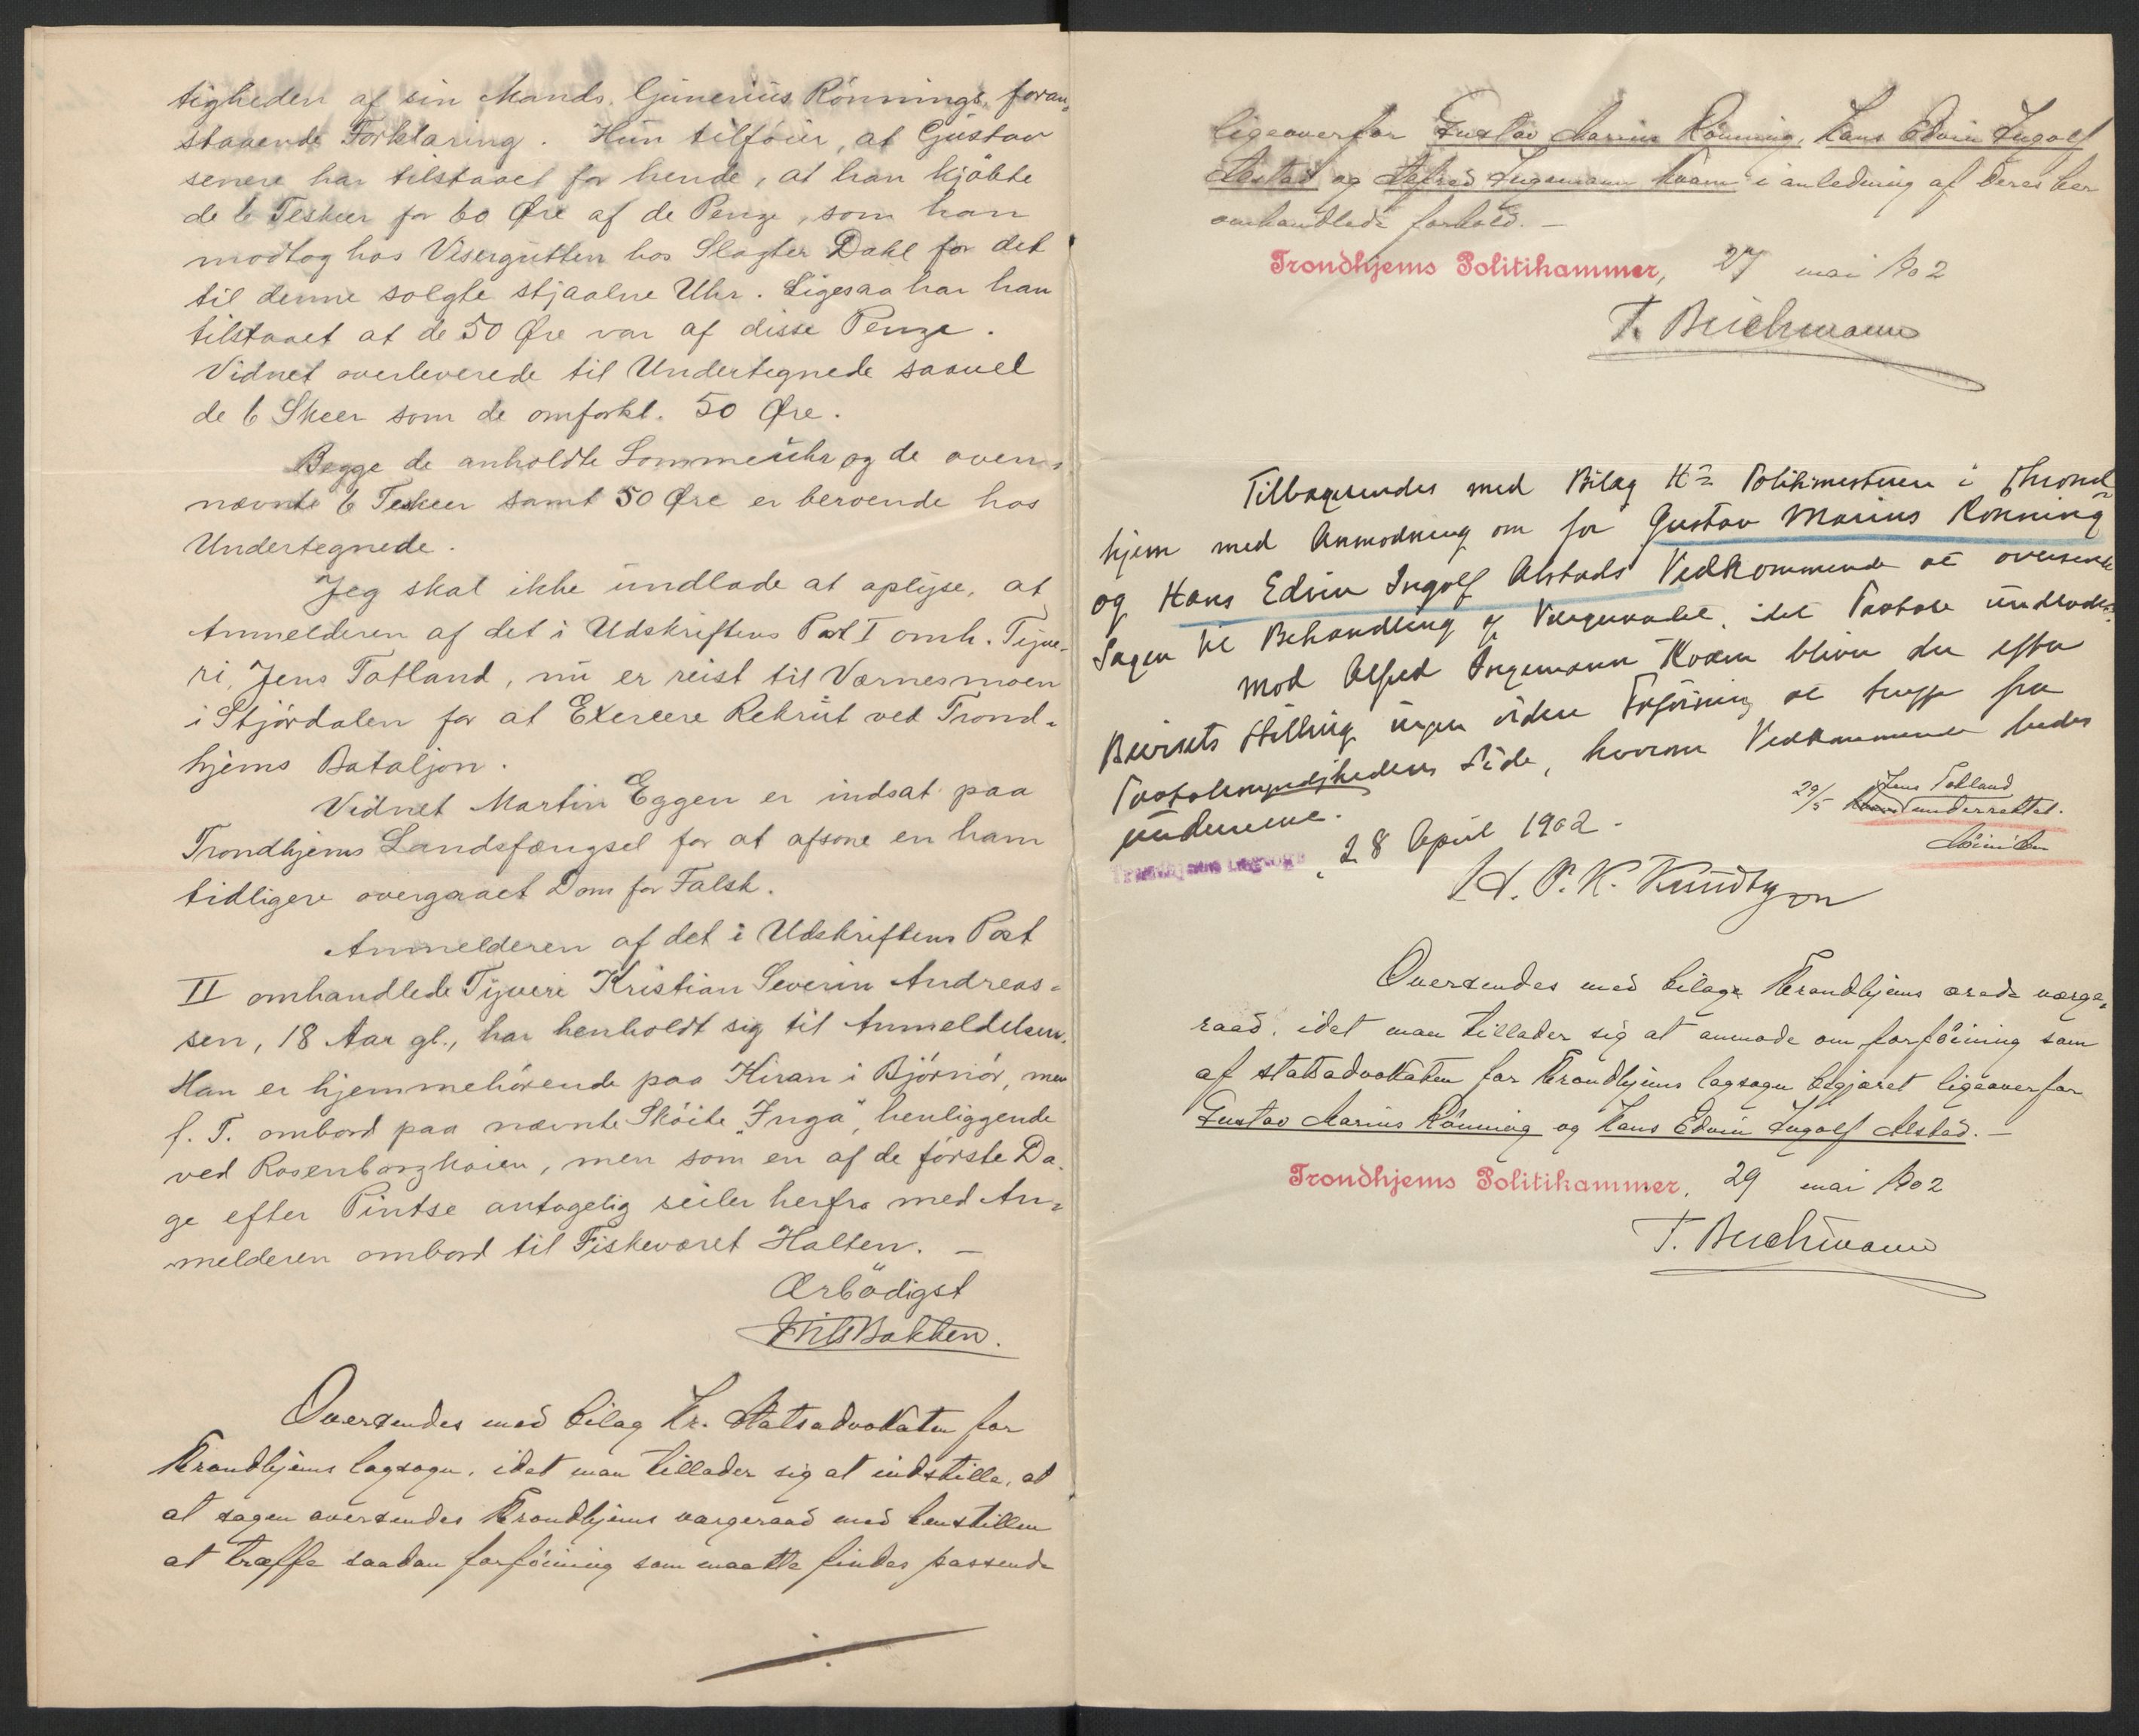 tigheden af sin Mands, Gunerius Rönnings, foran-
staaende Forklaring. Hun tilföier, at Gustav
senere har tilstaaet for hende, at han kjöbte
de 6 Teskeer for 60 Øre af de Penge, som han
modtog hos Visergutten hos Slagter Dahl for det
til denne solgte stjaalne Uhr. Ligesaa har han
tilstaaet at de 50 Øre var af disse Penge.
Vidnet overleverede til Undertegnede saavel
de 6 Skeer som de omforkl. 50 Øre.
Begge de anholdte Lommeuhr og de oven-
nævnte 6 Teskeer samt 50 Øre er beroende hos
Undertegnede.
Jeg skal ikke undlade at oplyse, at
Anmelderen af det i Udskriftens Post I omh. Tyve-
ri, Jens Totland, nu er reist til Værnesmoen
i Stjördalen for at Exercere Rekrut ved Trond-
hjems Bataljon.
Vidnet Martin Eggen er indsat paa
Trondhjems Landsfængsel for at afsone en ham
tidligere overgaaet Dom for Falsk.
Anmelderen af det i Udskriftens Post
II omhandlede Tyveri Kristian Severin Andreas-
sen, 18 Aar gl., har henholdt sig til Anmeldelsen.
Han er hjemmehörende paa Kiran i Björnör, men
f. T. ombord paa nævnte Sköite "Inga", henliggende
ved Rosenborgkaien, men som en af de förste Da-
ge efter Pintse antagelig seiler herfra med An-
melderen ombord til Fiskeværet Halten. —
Ærbödigst
Nils Bakken.
Oversendes med bilag Hr. Statsadvokaten for
Trondhjems lagsogn, idet man tillader sig at indstille, at
at sagen oversendes Trondhjems vergeraad med henstillen
at træffe saadan forföining som maatte findes passende
ligeoverfor Gustav Marius Rönning, Hans Edvin Ingolf
Alstad og Alfred Ingemann Kvam i anledning af deres her
omhandlede forhold. —
Trondhjems Politikammer, 27 mai 1902
T. Beichmann
Tilbagesendes med Bilag Hr. Politimesteren i Thrond-
hjem med Anmodning om for Gustav Marius Rönning
og Hans Edvin Ingolf Alstads Vedkommende at oversende
Sagen til Behandling af Vergeraadet, idet Paatale undlades.
Mod Alfred Ingemann Kvam bliver der efter
Bevisets Stilling ingen videre Forföining at træffe fra
Paatalemyndighedens Side, hvorom Vedkommende bedes
underrettet.
29/5 Jens Totland
underrettet.
28 April 1902.
H. P. K. Knudtzon
Oversendes med bilage Trondhjems ærede værge-
raad, idet man tillader sig at anmode om forföining som
af statsadvokaten for Trondhjems lagsogn begjæret ligeoverfor
Gustav Marius Rönning og Hans Edvin Ingolf Alstad. —
Trondhjems Politikammer, 29 mai 1902
T. Beichmann